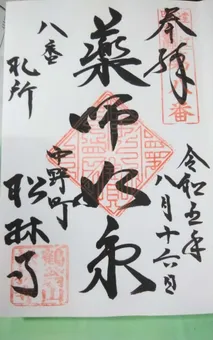 奉拝
令和五年
八月十六日
薬師如来
中野町
八番
札所
松林寺